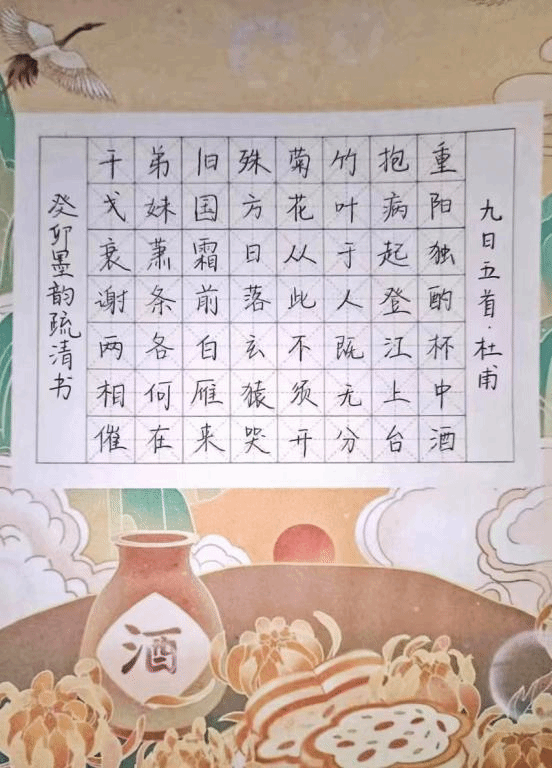 九日五首·杜甫
重阳独酌杯中酒
抱病起登江上台
竹叶于人既无分
菊花从此不须开
殊方日落玄猿哭
旧国霜前白雁来
弟妹萧条各何在
干戈衰谢两相催
癸卯墨韵疏清书
酒